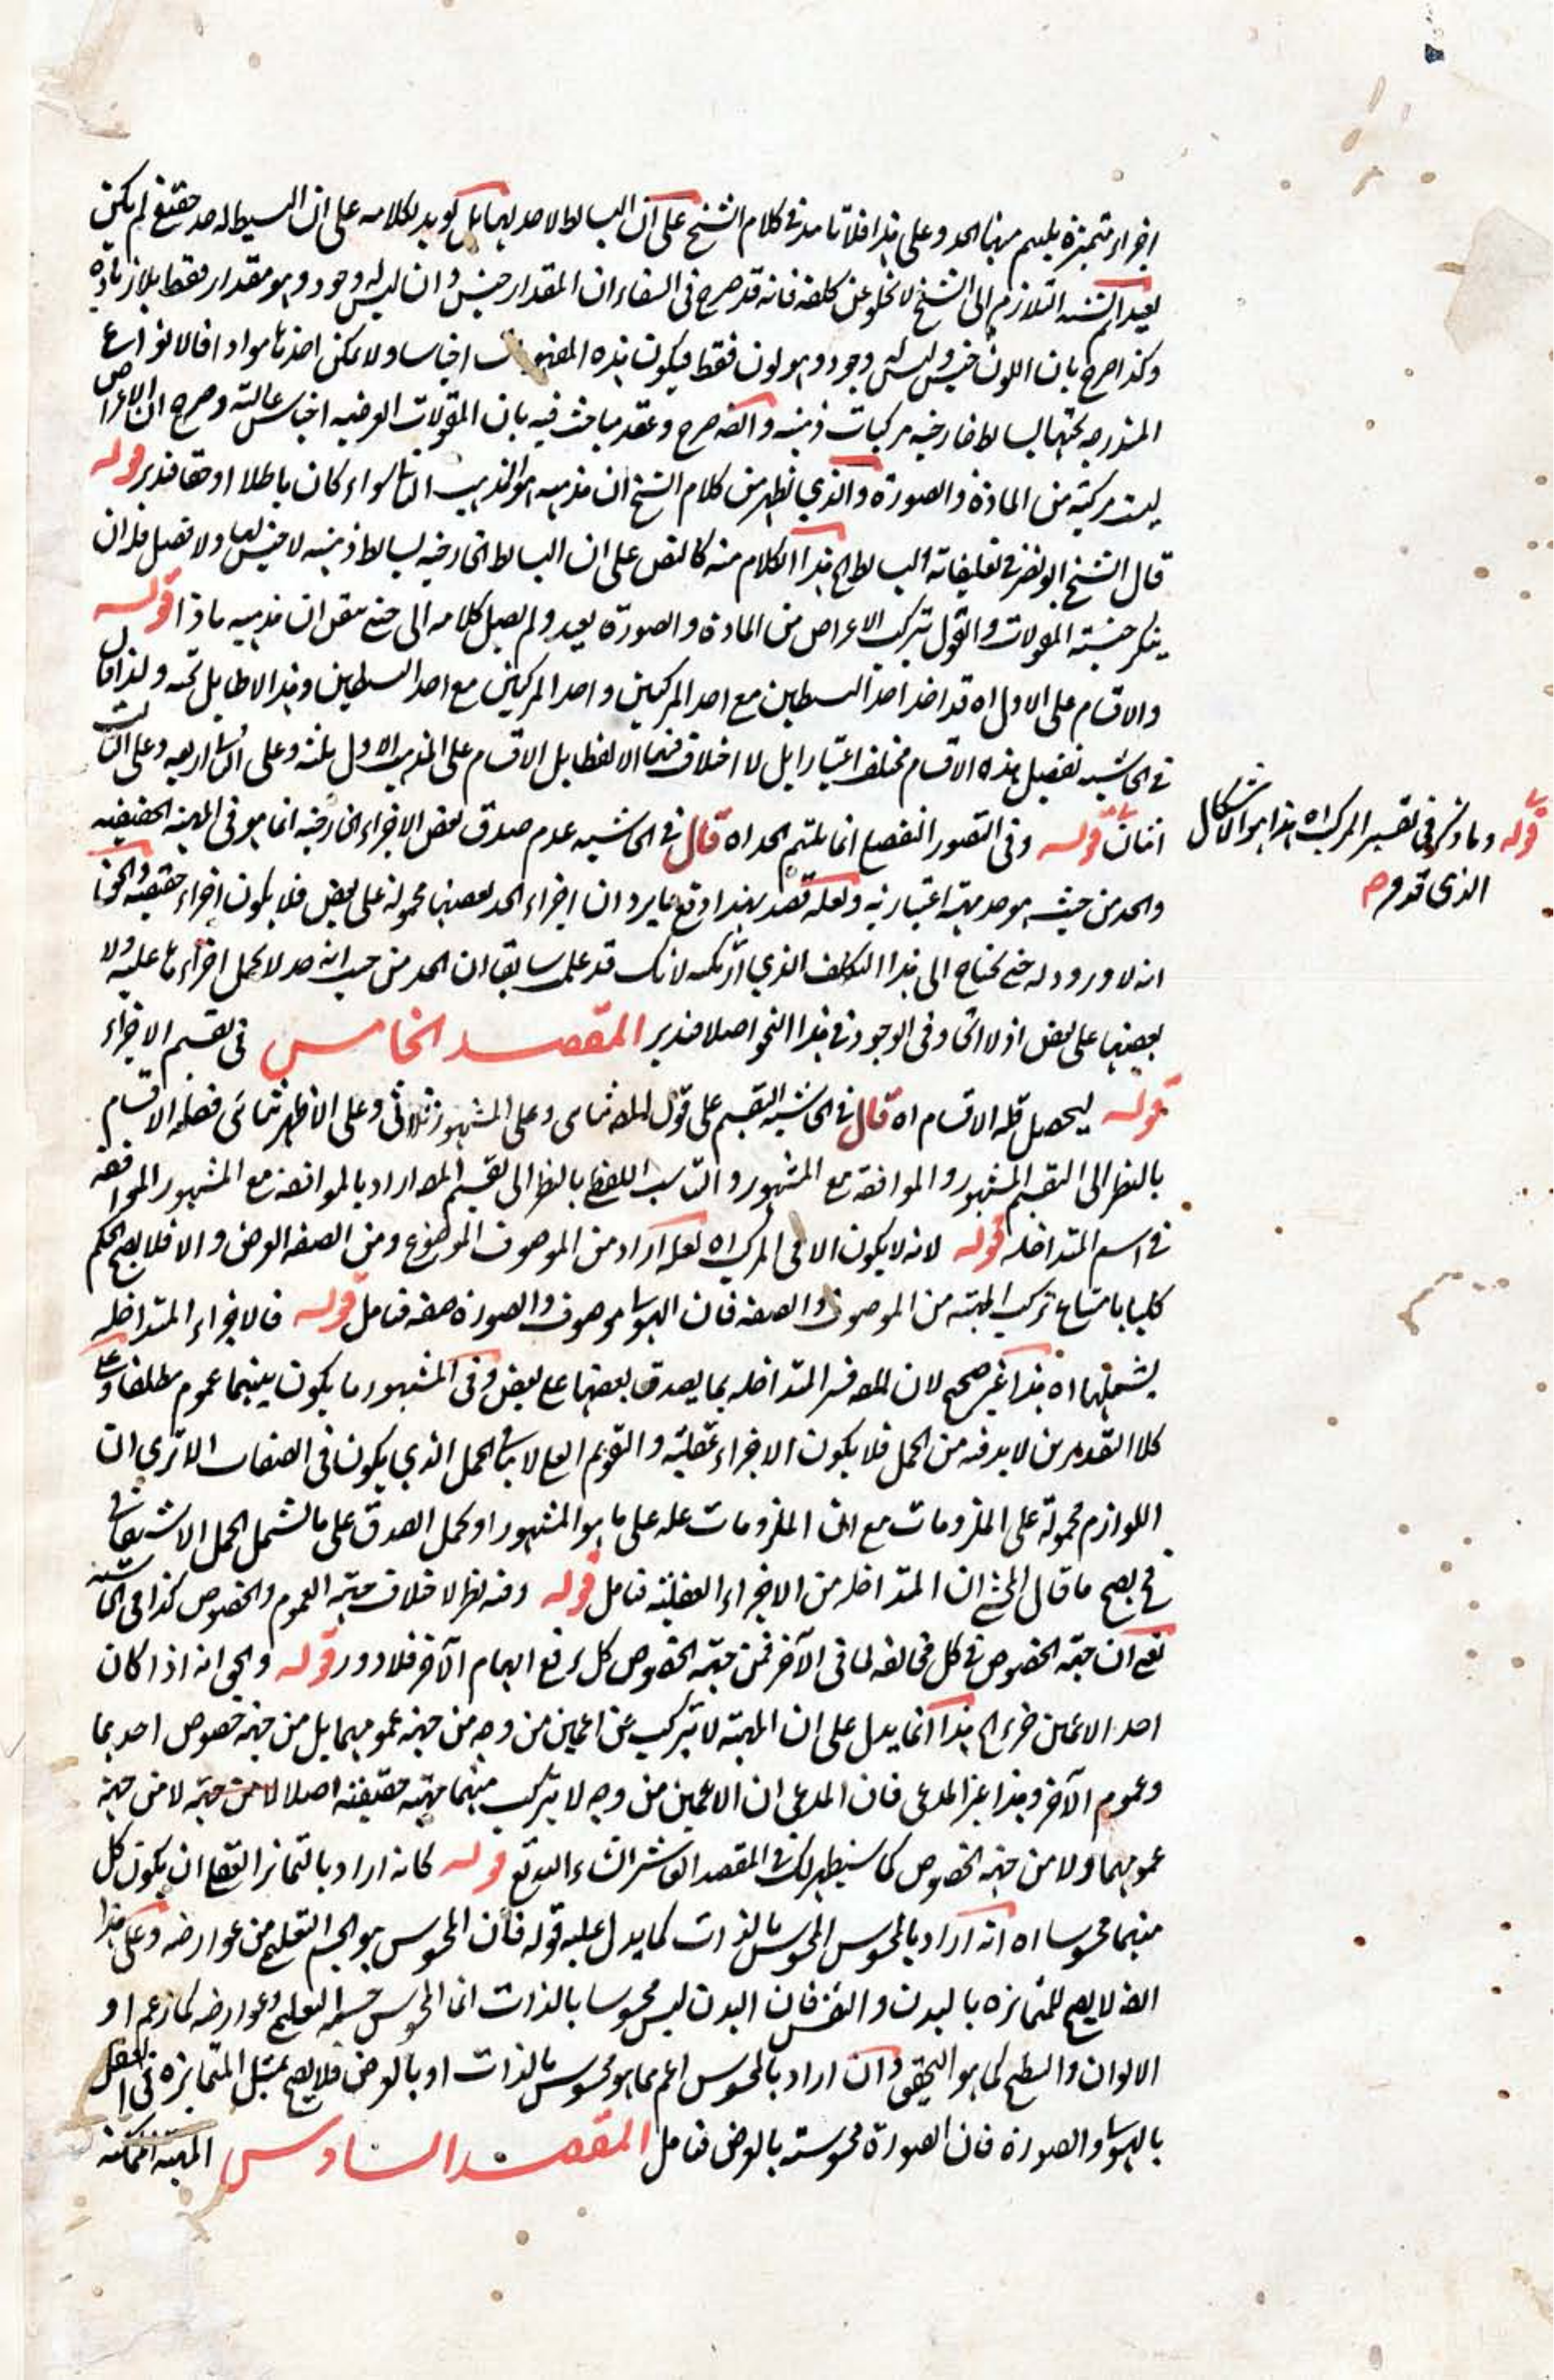 اجزاء متميزة يلتئم منها الحد وعلى هذا فلا تأييد في كلام الشيخ على ان البسائط لا حد لها بل يؤيد كلامه على ان البسيط له حد حقيقي لم يكن
بعيدا ثم نسبة التلازم الى الشيخ لا تخلو عن كلفة فانه قد صرح في الشفاء ان المقدار جنس وان ليس له وجود وهو مقدار فقط بلا زيادة
وكذا صرح بان اللون جنس وليس له وجود وهو لون فقط فيكون هذه المفهومات اجناسا ولا يمكن اخذها مواد فالانواع
المندرجة تحتها بسائط خارجية مركبات ذهنية وايضا صرح وعقد مباحث فيه بان المقولات العرضية اجناس عالية وصرح ان الاعراض
ليست مركبة من المادة والصورة والذي يظهر من كلام الشيخ ان مذهبه هو المذهب الثاني سواء كان باطلا او حقا فتدبر قوله
قال الشيخ ابو نصر في تعليقاته البسائط الخ هذا الكلام منه كالنص على ان البسائط الخارجية بسائط ذهنية لا جنس لها ولا فصل فله ان
ينكر جنسية المقولات والقول بتركب الاعراض من المادة والصورة بعيد ولم يصل كلامه الى حتى يتقن ان مذهبه ماذا قوله
والاقسام على الاول اه قد اخذ احد البسيطين مع احد المركبين واحد المركبين مع احد البسيطين وهذا لا طائل تحته ولذا قال
في الحاشية تفصيل هذه الاقسام مختلف اعتبارا بل لا اختلاف فيها الا لفظا بل الاقسام على المذهب الاول ثلثة وعلى الثاني اربعة وعلى الثالث
اثنان قوله وفي التصور التفصيلي انما يلتئم الحد اه قال في الحاشية عدم صدق بعض الاجزاء الخارجية انما هو في المهية الحقيقية
والحد من حيث هو حد مهية اعتبارية ولعله قصد بهذا دفع ما يرد ان اجزاء الحد بعضها محمولة على بعض فلا يكون اجزاء حقيقة والحق
انه لا ورود له حتى يحتاج الى هذا التكلف الذي ارتكبه لانك قد علمت سابقا ان الحد من حيث انه حد لا يحمل اجزاءها عليه ولا
بعضها على بعض اذ لا اتحاد في الوجود في هذا النحو اصلا فتدبر المقصد الخامس في تقسيم الاجزاء
قوله ليحصل قلة الاقسام اه قال في الحاشية التقسيم على قول المص ثنائي وعلى المشهور ثلاثي وعلى الاظهر ثنائي فقلة الاقسام
بالنظر الى التقسيم المشهور والموافقة مع المشهور والتناسب اللفظي بالنظر الى تقسيم المص اراد بالموافقة مع المشهور الموافقة
في اسم المتداخلة قوله لانه لا يكون الا في المركب اه لعله اراد من الموصوف الموضوع ومن الصفة العرض والا فلا يصح الحكم
كليا بامتناع تركيب المهية من الموصوف والصفة فان الهيولى موصوف والصورة صفة فتأمل قوله فالاجزاء المتداخلة
يشملها اه هذا غير صحيح لان المص فسر المتداخلة بما يصدق بعضها على بعض وفي المشهور ما يكون بينهما عموم مطلقا وعلى
كلا التقديرين لا بد فيه من الحمل فلا يكون الاجزاء عقلية والتقويم العلي لا ينافي الحمل الذي يكون في الصفات الا ترى ان
اللوازم محمولة على الملزومات مع ان الملزومات علة على ما هو المشهور او يحمل الصدق على ما يشمل الحمل الاشتقاقي
فح يصح ما قال المحشي ان المتداخلة من الاجزاء العقلية فتأمل قوله وفيه نظر لاختلاف جهة العموم والخصوص كذا في الحاشية
نعم ان جهة الخصوص في كل مخالفة لما في الآخر فمن جهة الخصوص كل يرفع ابهام الآخر فلا دور قوله والحق انه اذا كان
احد الاعمين جزء الخ هذا انما يدل على ان المهية لا يتركب عن اعمين من وجه من جهة عمومهما بل من جهة خصوص احدهما
وعموم الآخر وهذا غير المدعى فان المدعى ان الاعمين من وجه لا يتركب منهما مهية حقيقية اصلا لا من جهة لا من جهة
عمومهما ولا من جهة الخصوص كما سيظهر لك في المقصد العاشر ان شاء الله تع قوله كانه اراد بالتمايز العقلي ان يكون كل
منهما محسوسا اه انه اراد بالمحسوس المحسوس بالذات كما يدل عليه قوله فان المحسوس هو الجسم التعليمي من عوارضه وعلى هذا
ايضا لا يصح للتمايزه بالبدن والنفس فان البدن ليس محسوسا بالذات انما المحسوس جسمه التعليمي وعوارضه كما زعم او
الالوان والسطح كما هو التحقيق وان اراد بالمحسوس اعم مما هو محسوس بالذات او بالعرض فلا يصح تمثيل المتمايزة في العقل
بالهيولى والصورة فان الصورة محسوسة بالعرض فتأمل المقصد السادس المهية الممكنة
قوله وما ذكر في تفسير المركب اه هذا هو الاشكال
الذي قد مر